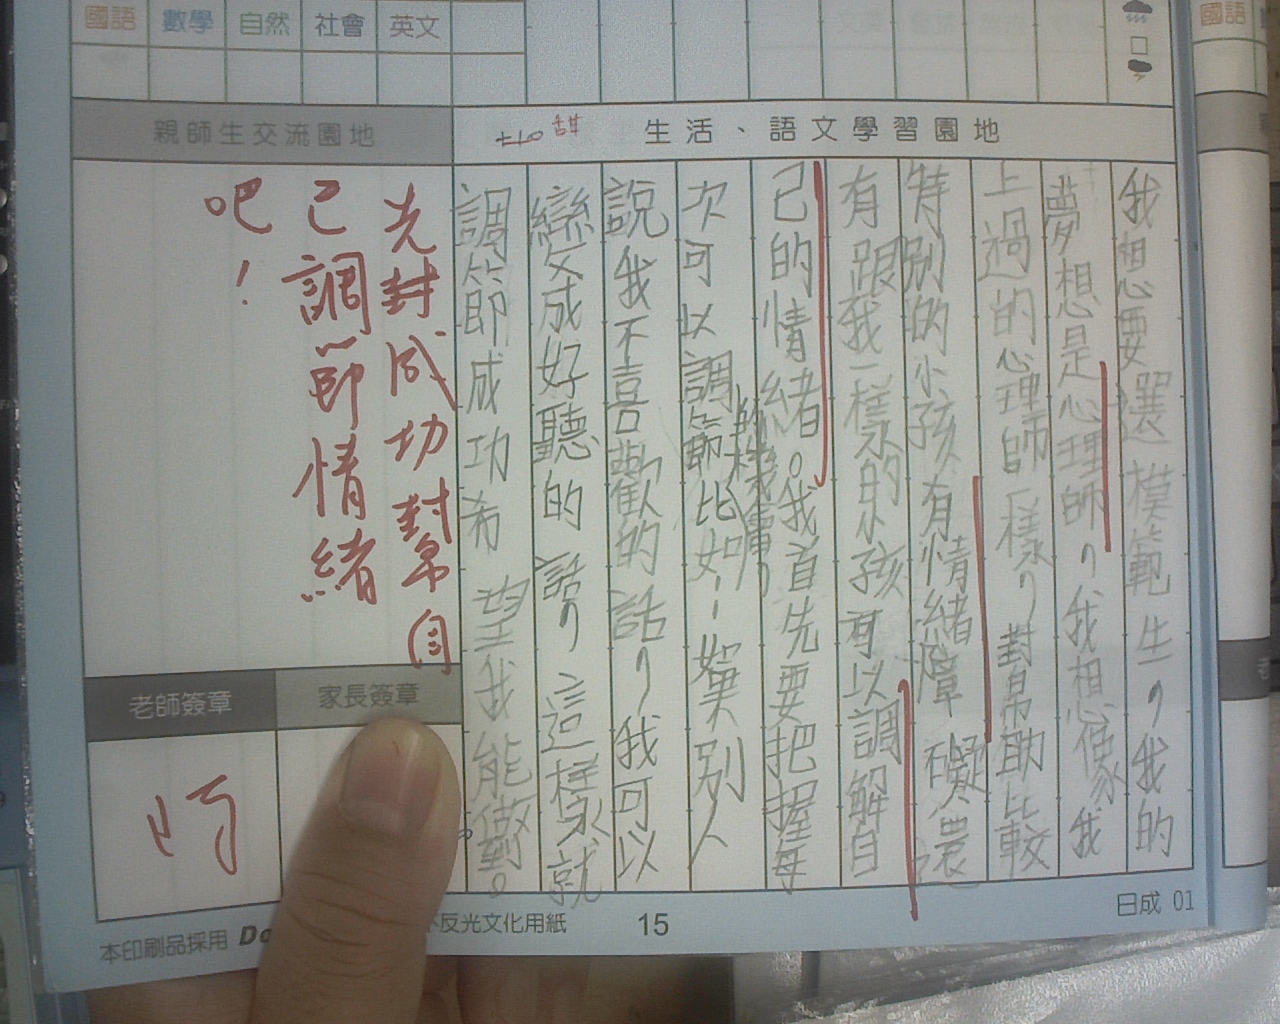 國語 數學 自然 社會 英文
國語
親師生交流園地
生活、語文學習園地
我想要選模範生,我的
夢想是心理師,我想像我
上過的心理師一樣,對幫助比較
特別的小孩有情緒障礙還
有跟我一樣的小孩可以調解自
己的情緒。我首先要把握每
次可以調節的機會,比如:如果別人
說我不喜歡的話,我可以
變成好聽的話,這樣就
調節成功希望我能做到。
先封成功幫自
己調節情緒
吧!
老師簽章
家長簽章
本印刷品採用 Do
不反光文化用紙
15
日成 01